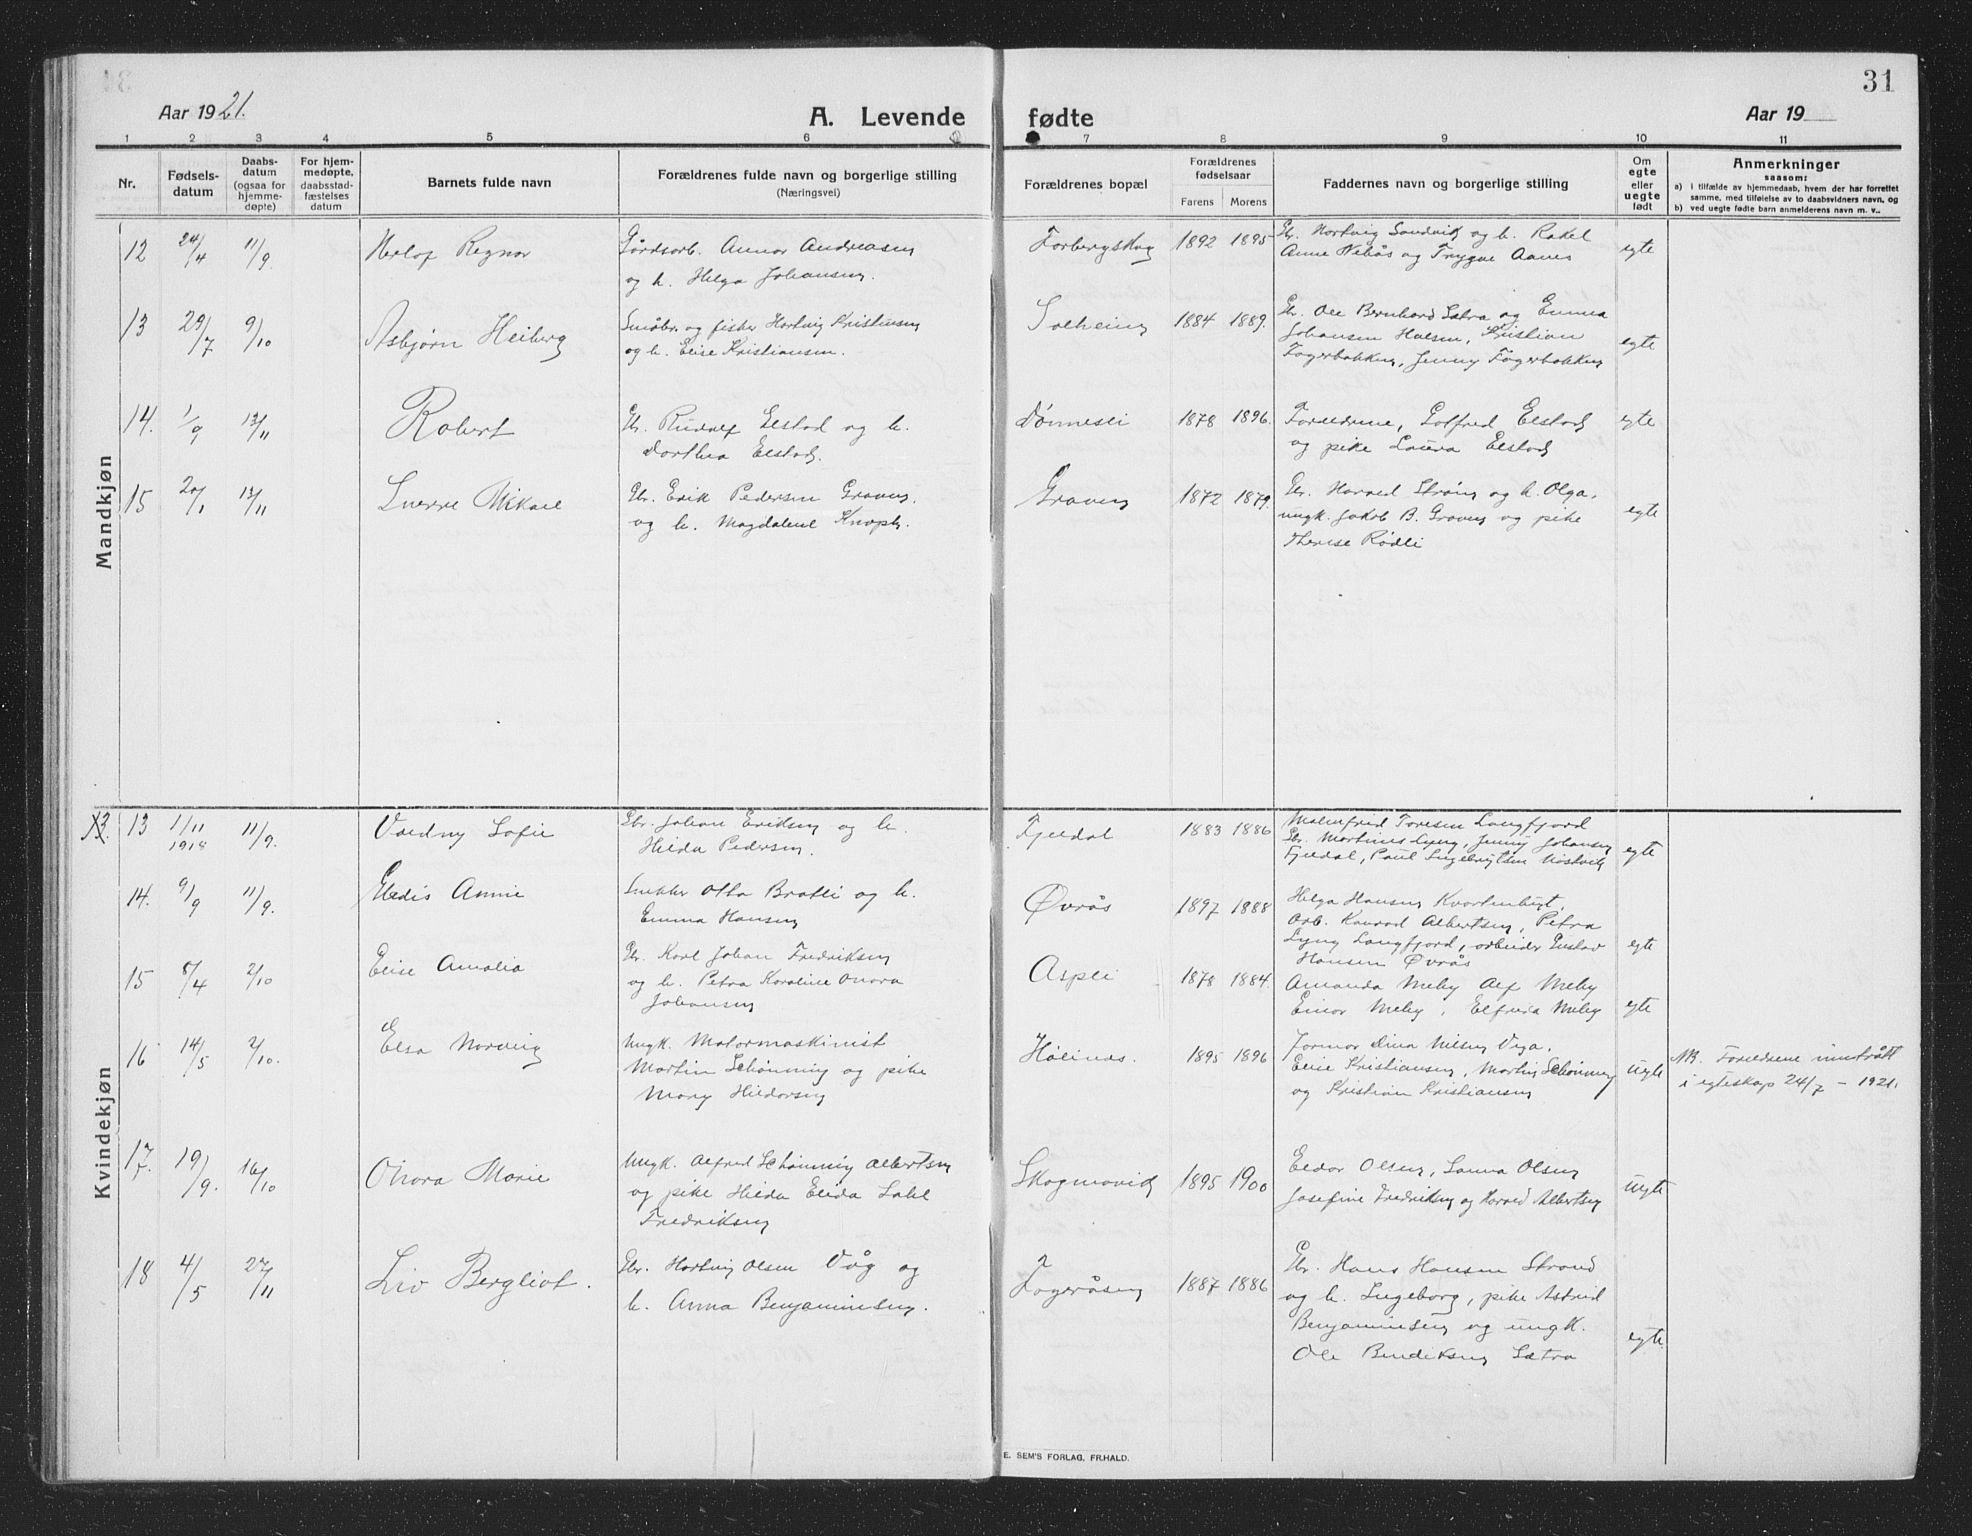 31
Aar 1921.
A. Levende fødte
Aar 19
1 2 3 4 5 6 7 8 9 10 11
Nr.
Fødsels-
datum
Daabs-
datum
(ogsaa for
hjemme-
døpte)
For hjem-
medøpte,
daabsstad-
fæstelses
datum
Barnets fulde navn
Forældrenes fulde navn og borgerlige stilling
(Næringsvei)
Forældrenes bopæl
Forældrenes
fødselsaar
Farens Morens
Faddernes navn og borgerlige stilling
Om
egte
eller
uegte
født
Anmerkninger
saasom:
a) i tilfælde av hjemmedaab, hvem der har forrettet
samme, med tilføielse av to daabsvidners navn, og
b) ved uegte fødte barn anmelderens navn m. v..
Mandkjøn
12 24/4 11/9. Herlof Regnor
Gårdsarb. Annar Andreasen
og h. Helga Johansen.
Forbergskog 1892 1895
Gbr. Hartvig Sandvik og h. Rakel
Anne Nebås og Trygve Aanes
egte
13 29/7 9/10 Asbjørn Heiberg
Småbr. og fisker Hartvig Kristiansen
og h. Elise Kristiansen.
Solheim 1884 1889.
Gbr. Ole Bernhard Sætra og Emma
Johansen Halsen, Kristian
Fagerbakken, Jenny Fagerbakken
egte
14. 1/9 13/11 Robert
Gbr. Rudolf Elstad og h.
Dorthea Elstad.
Dønnesli 1878 1896.
Forældrene, Gotfred Elstad
og pike Laura Elstad
egte
15 20/1 13/11 Sverre Mikael
Gbr. Erik Pedersen Graven.
og h. Magdalene Knoph.
Graven 1872 1879.
Gbr. Harald Strøm og h. Olga,
ungk. Jakob B. Graven og pike
Therese Rødli
egte
Kvindekjøn
13 1/11 1918 11/9. Valdny Sofie
Gbr. Johan Eriksen og h.
Hilda Pedersen.
Fjeldal 1883 1886
Malmfrid Toresen Langfjord
Gbr. Martines Lyng, Jenny Johansen
Fjeldal, Paul Ingebrigtsen
egte
14. 9/9 11/9. Gledis Annie
Snekker Otto Bratli og h.
Emma Hansen
Øvrås 1897 1888
Helga Hansen Kvartenbugt.
Arb. Konrad Albertsen, Petra
Lyng Langfjord, arbeider Gustav
Hansen Øvrås
egte
15 5/4 2/10 Elise Amalia
Gbr. Karl Johan Fredriksen
og h. Petra Karoline Onora
Johansen
Aspli 1878 1884.
Amanda Meby Alf Meby
Einar Meby, Elfrida Meby
egte
16 14/5 2/10. Elsa Norveig
Ungk. Motormaskinist
Martin Schønning og pike
Mary Hildorsen
Hølines. 1895 1896
Farmor Dina Nilsen Vega.
Elise Kristiansen, Martin Schønning
og Kristian Kristiansen
uegte
NB. Forældrene inntrått
i egteskap 24/7 – 1921.
17. 19/9. 16/10 Onora Marie
Ungk. Alfred Schønning Albertsen
og pike Hilda Elida
Fredriksen
Skogmovik 1895 1900
Eldor Olsen, Sanna Olsen
Josefine Fredriksen og Harald Albertsen
uegte
18 4/5 27/11 Liv Bergliot.
Gbr. Hartvig Olsen Våg og
h. Anna Benjaminsen.
Fageråsen 1887 1886
Gbr. Hans Hansen Strand
og h. Ingeborg, pike Astrid
Benjaminsen og ungk.
Ole Bendiksen Sætra
egte.
E. SEM'S FORLAG, FR.HALD.